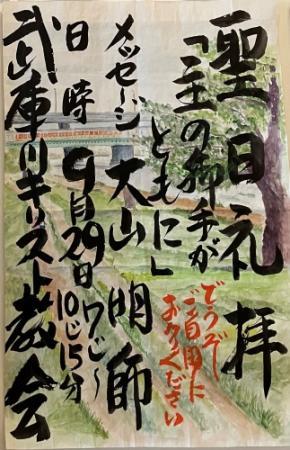 聖日礼拝
「主の御手が
ともに」
どうぞ
ご自由に
お入りください
メッセージ 大山 明 師
日時 9月29日 9じ〜10じ15分
武庫川キリスト教会